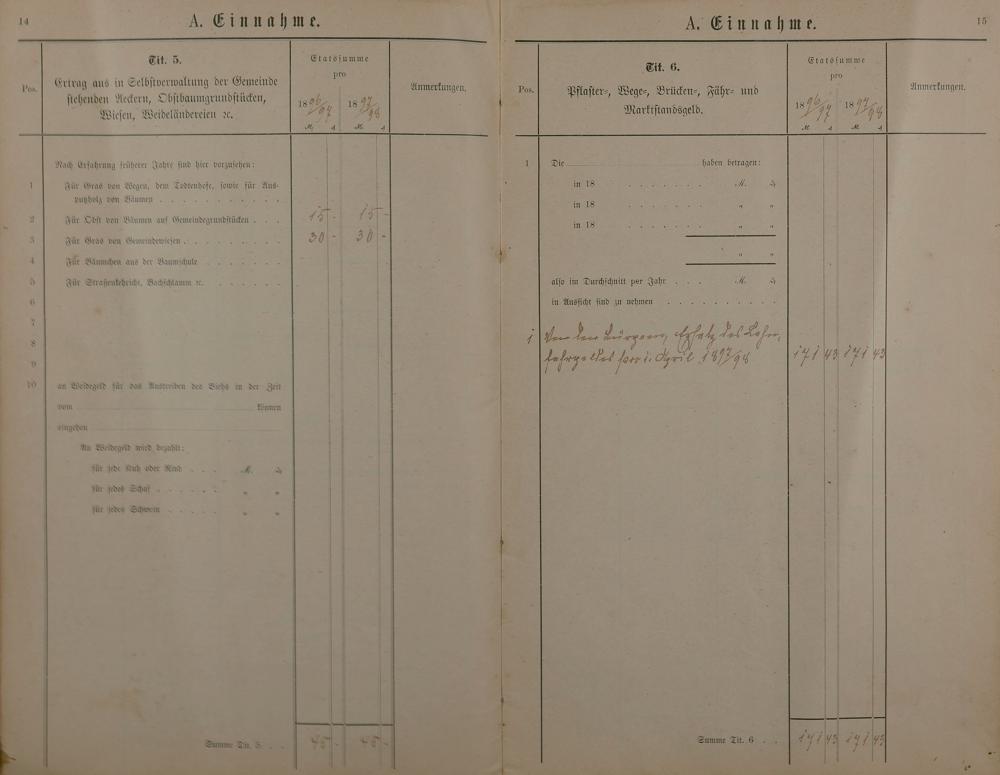 14
A. Einnahme.
Pos.
Tit. 5.
Ertrag aus in Selbstverwaltung der Gemeinde
stehenden Aeckern, Obstbaumgrundstücken,
Wiesen, Weideländereien ꝛc.
Etatssumme
pro
1896/97 1897/98
M. ₰ M. ₰
Anmerkungen.
Nach Erfahrung früherer Jahre sind hier vorzusehen:
1 Für Gras von Wegen, dem Todtenhofe, sowie für Aus-
putzholz von Bäumen . . . . . . . . . . .
2 Für Obst von Bäumen auf Gemeindegrundstücken . . . 15 - 15 -
3 Für Gras von Gemeindewiesen . . . . . . . . 30 - 30 -
4 Für Bäumchen aus der Baumschule . . . . . . .
5 Für Straßenkehricht, Bachschlamm ꝛc. . . . . . . .
6
7
8
9
10 an Weidegeld für das Austreiben des Viehs in der Zeit
vom können
eingehen
An Weidegeld wird bezahlt:
für jede Kuh oder Rind . . . M. ₰
für jedes Schaf . . . . . . „ „
für jedes Schwein . . . . . „ „
Summe Tit. 5 . . 45 - 45 -
15
A. Einnahme.
Pos.
Tit. 6.
Pflaster-, Wege-, Brücken-, Fähr- und
Marktstandsgeld.
Etatssumme
pro
1896/97 1897/98
M. ₰ M. ₰
Anmerkungen.
1 Die haben betragen:
in 18 . . . . . . . M. ₰
in 18 . . . . . . . „ „
in 18 . . . . . . . „ „
„ „
also im Durchschnitt per Jahr . . . M. ₰
in Aussicht sind zu nehmen . . . . . . . . . .
1 Von den Bürgern, Ersatz des
des pro 1. April 1897/98 171 43 171 43
Summe Tit. 6 . . 171 43 171 43